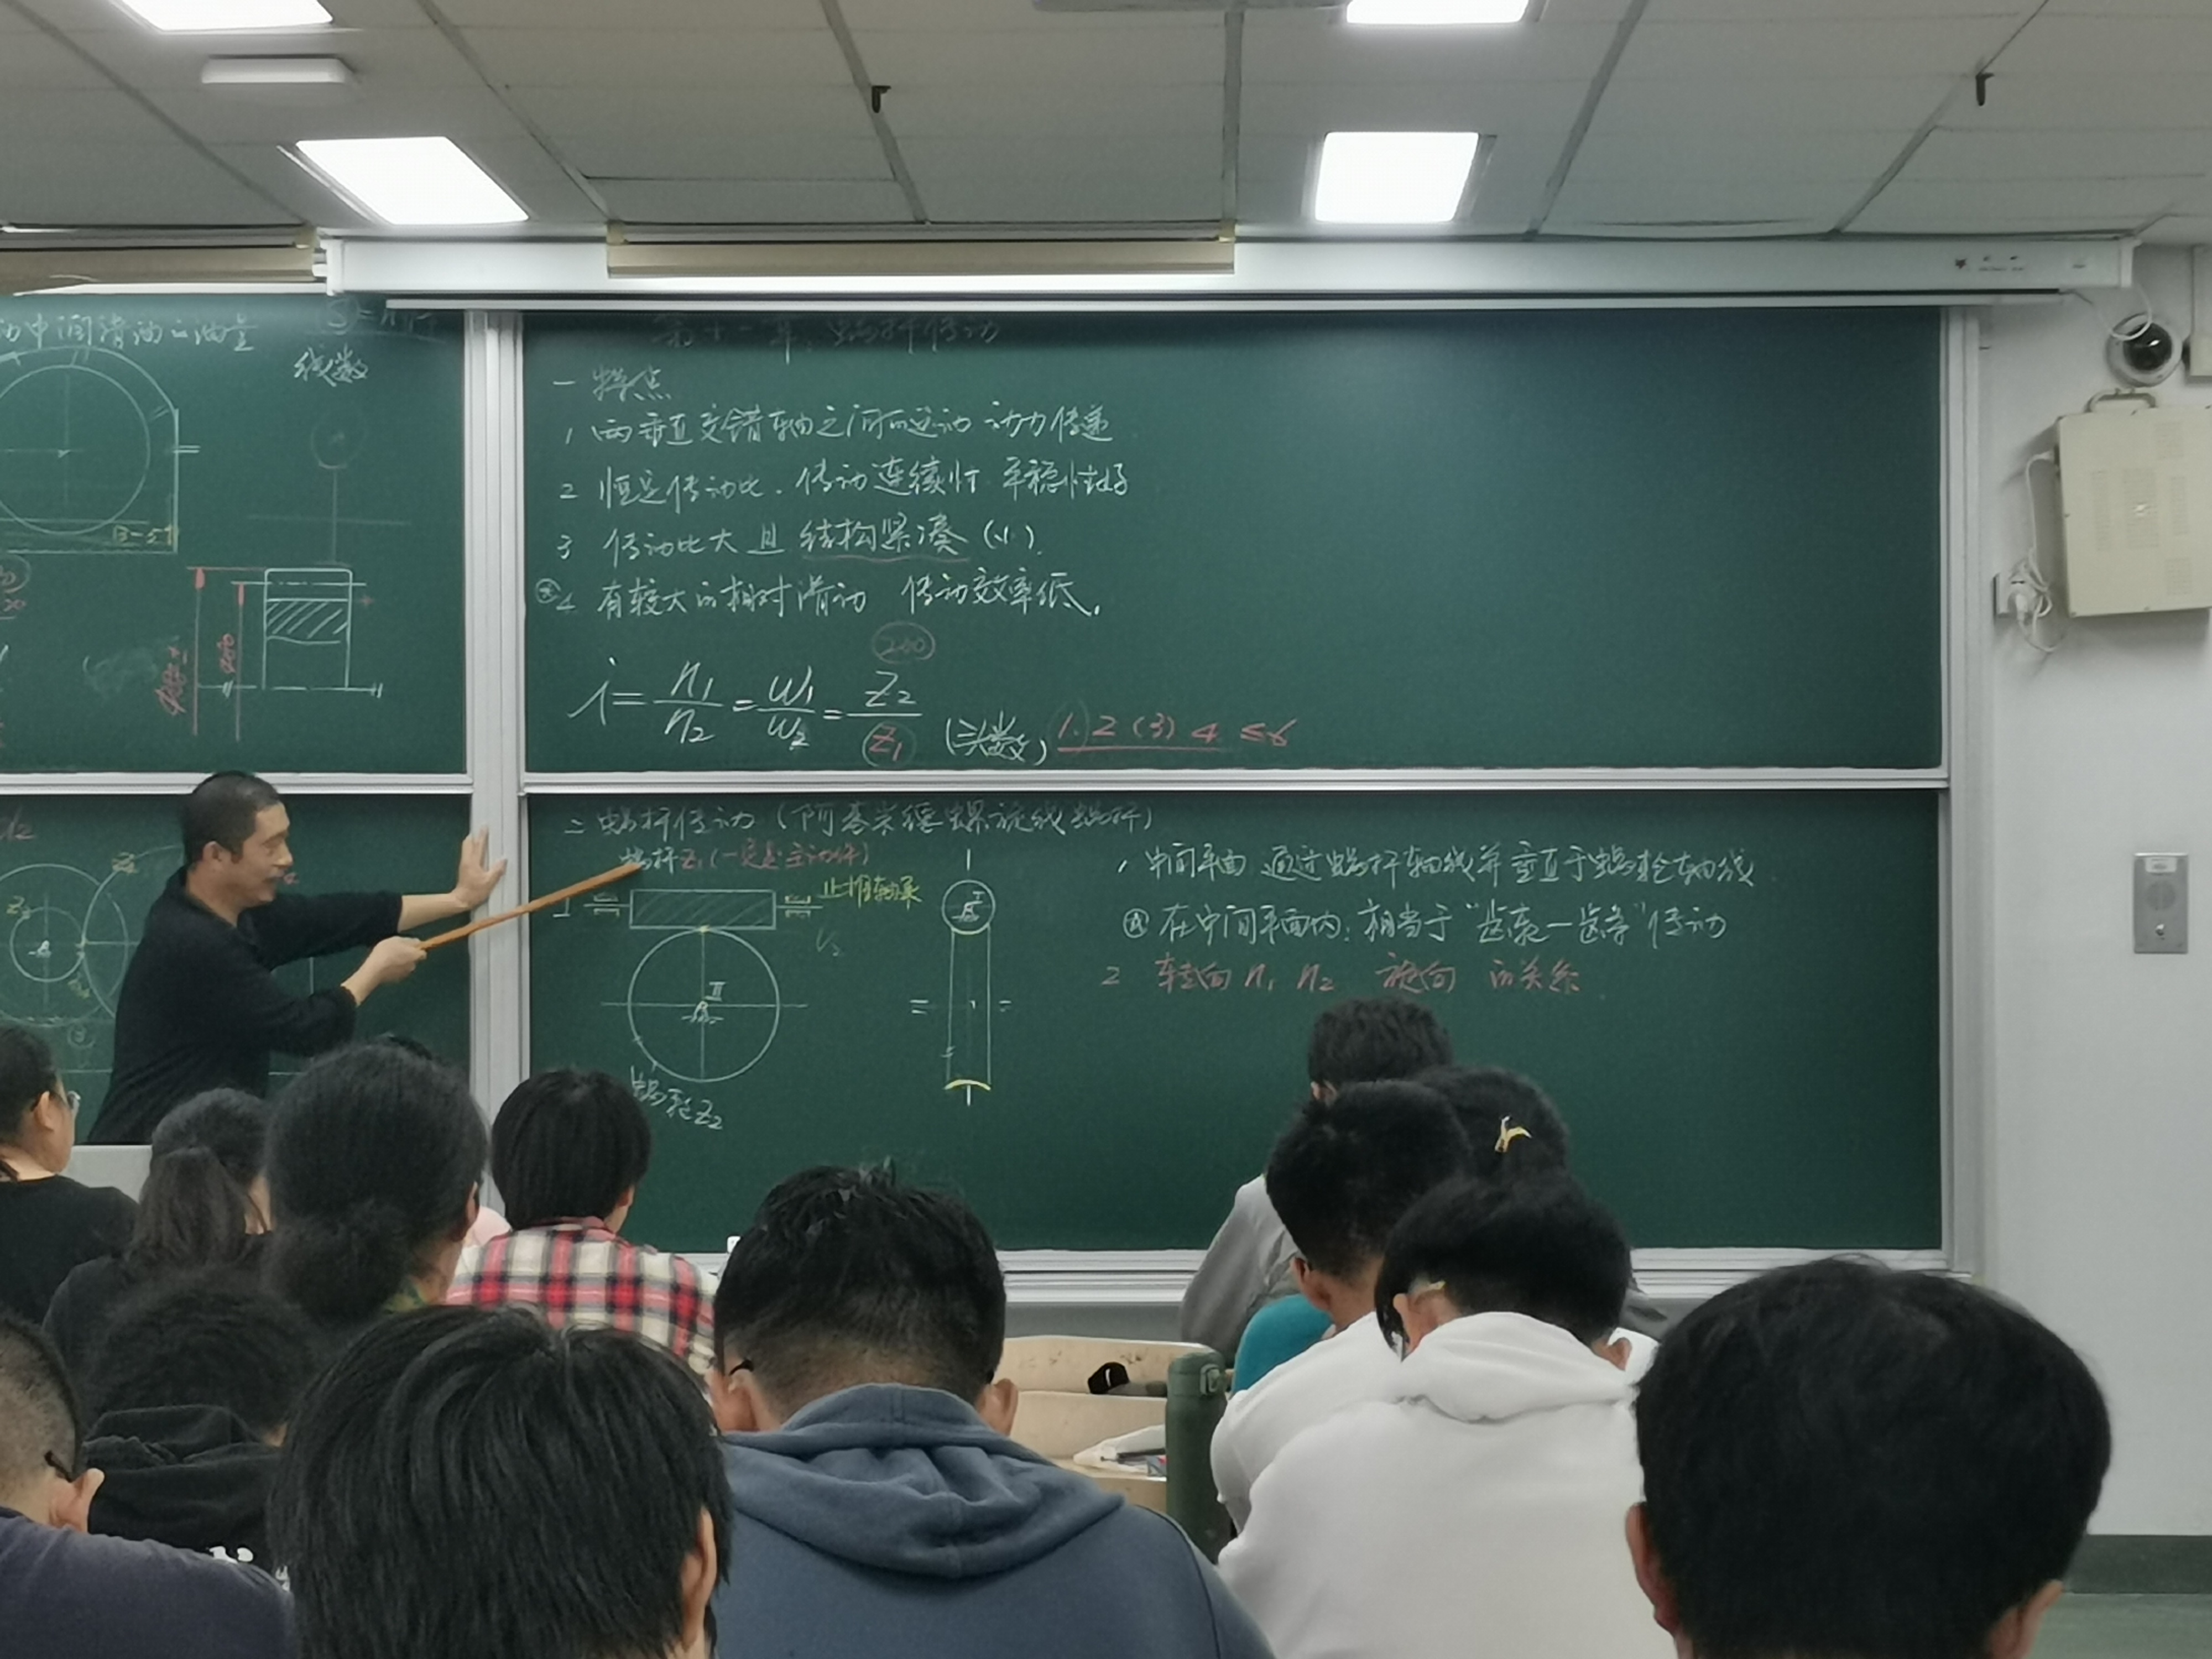 动中润滑油的油量
线数
13-5
第十一章 蜗杆传动
一 特点
1 两垂直交错轴之间的运动 动力传递
2 恒定传动比. 传动连续性 平稳性好
3 传动比大且 结构紧凑 (小).
4 有较大的相对滑动 传动效率低.
200
i = n1/n2 = ω1/ω2 = Z2/Z1 (头数) 1. 2 (3) 4 ≤6
二 蜗杆传动 (阿基米德螺旋线蜗杆)
蜗杆Z1 (一定是主动件)
止推轴承
I
V2
II
蜗轮Z2
I
1 中间平面 通过蜗杆轴线并垂直于蜗轮轴线
在中间平面内: 相当于"齿轮一齿条"传动
2 转向 n1 n2 旋向 的关系
Z3